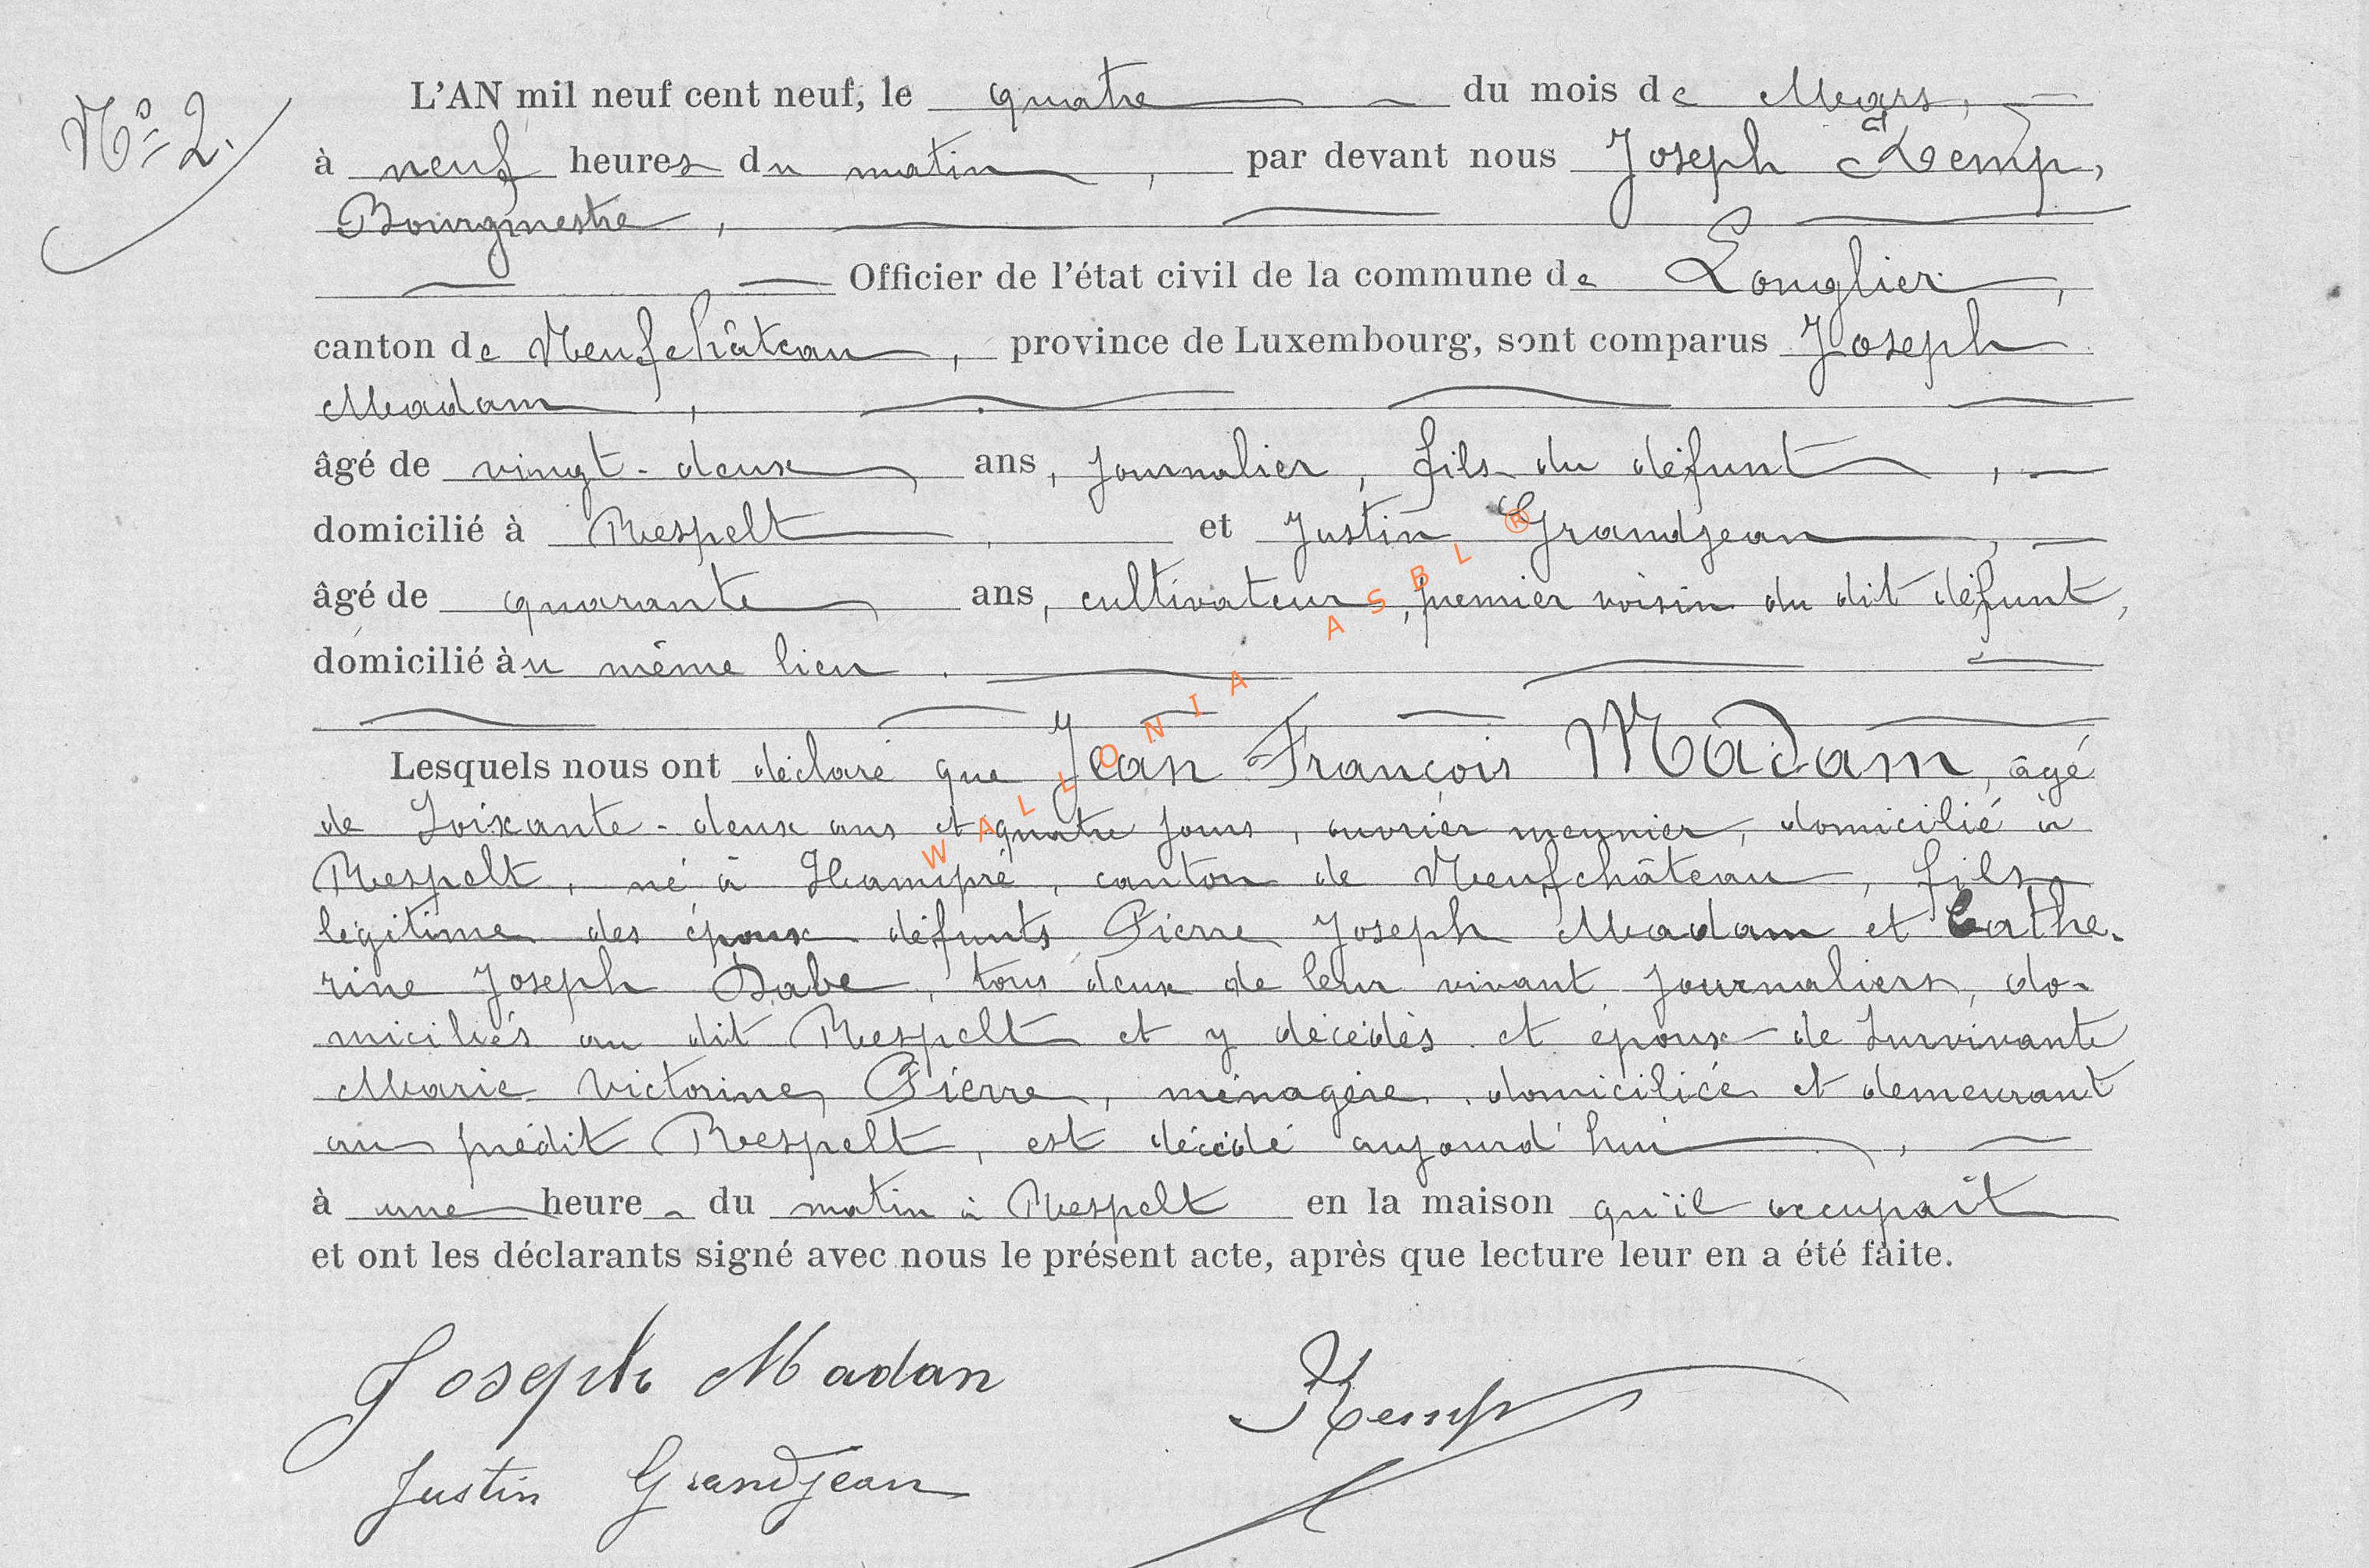 N° 2.
L'AN mil neuf cent neuf, le quatre du mois de Mars,
à neuf heures du matin, par devant nous Joseph Kemp,
Bourgmestre,
Officier de l'état civil de la commune de Longlier,
canton de Neufchâteau, province de Luxembourg, sont comparus Joseph
Madam,
âgé de vingt-deux ans, journalier, fils du défunt,
domicilié à Respelt, et Justin Grandjean,
âgé de quarante ans, cultivateur, premier voisin du dit défunt,
domicilié au même lieu.
Lesquels nous ont déclaré que Jean François Madam, âgé
de soixante-deux ans et quatre jours, ouvrier meunier, domicilié à
Respelt, né à Hamipré, canton de Neufchâteau, fils
légitime des époux défunts Pierre Joseph Madam et Cathe-
rine Joseph Dabe, tous deux de leur vivant journaliers, do-
miciliés au dit Respelt et y décédés et époux de survivante
Marie Victorine Pierre, ménagère, domiciliée et demeurant
au prédit Respelt, est décédé aujourd'hui,
à une heure du matin à Respelt en la maison qu'il occupait
et ont les déclarants signé avec nous le présent acte, après que lecture leur en a été faite.
Joseph Madan
Kemp
Justin Grandjean
WALLONIA ASBL ®